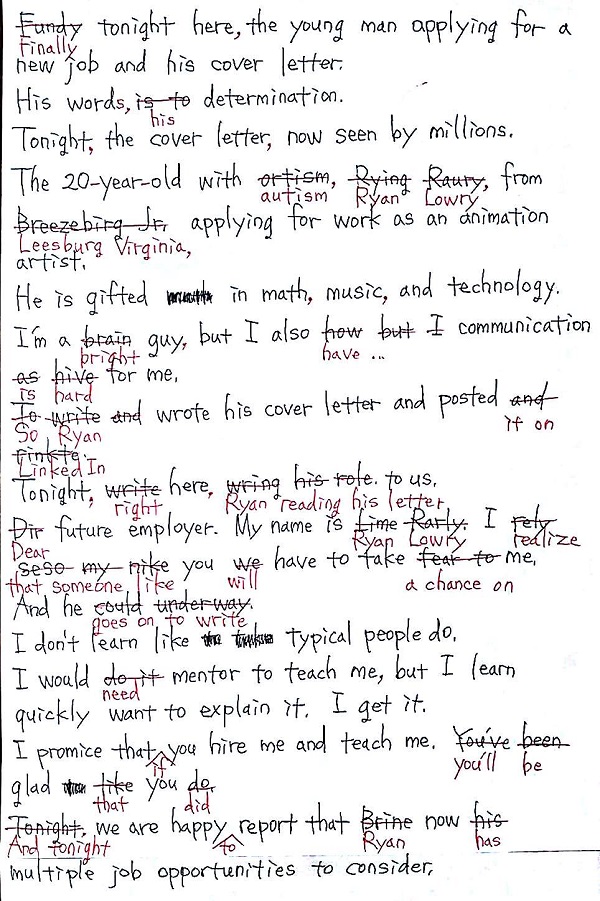 Fundy tonight here, the young man applying for a
Finally
new job and his cover letter.
His words, is to determination.
his
Tonight, the cover letter, now seen by millions.
The 20-year-old with ortism, Rying Raury, from
autism Ryan Lowry
Breezebirg Jr, applying for work as an animation
Leesburg Virginia,
artist.
He is gifted in math, music, and technology.
I'm a brain guy, but I also how but I communication
bright have ...
as hive for me.
is hard
To write and wrote his cover letter and posted and
So Ryan it on
rinkte.
Linked In
Tonight, write here, wring his role. to us.
right Ryan reading his letter
Dir future employer. My name is Lime Rarly. I rely
Dear Ryan Lowry realize
seso my nike you we have to take fear to me,
that someone like will a chance on
And he could underway.
goes on to write
I don't learn like typical people do.
I would do it mentor to teach me, but I learn
need
quickly want to explain it. I get it.
I promice that you hire me and teach me. You've been
if you'll be
glad like you do,
that did
Tonight, we are happy report that Brine now his
And tonight to Ryan has
multiple job opportunities to consider,